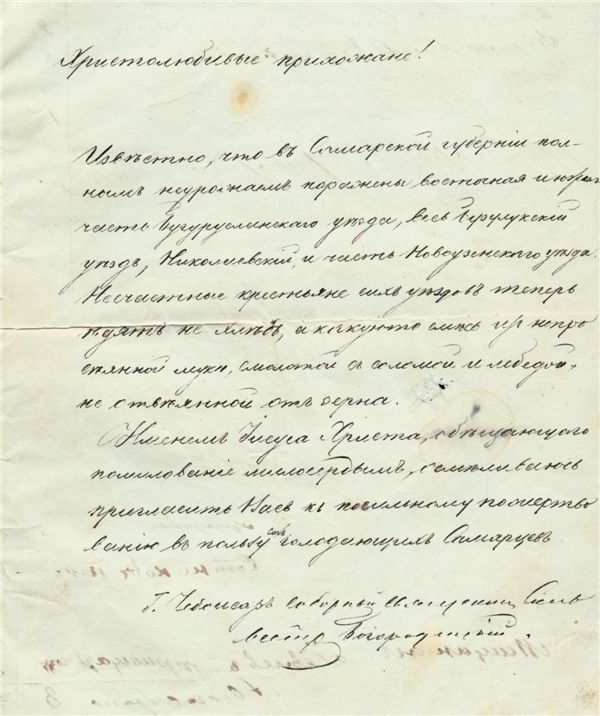 Христолюбивые прихожане!
Извѣстно, что въ Самарской губерніи пол-
нымъ неурожаемъ поражены восточная и южная
часть Бугурусланскаго уѣзда, весь Бузулукскій
уѣздъ, Николаевскій, и часть Новоузенскаго уѣзда.
Несчастные крестьяне сихъ уѣздовъ теперь
ѣдятъ не хлѣбъ, а какую то смѣсь изъ непро
сѣянной муки, смолотой съ соломой и лебедой,
не отвѣянной отъ зерна.
Именемъ Іисуса Христа, обѣщающаго
помилованіе милосердымъ, осмѣливаюсь
пригласить Васъ къ посильному пожертво
ванію въ пользу сихъ голодающихъ Самарцевъ.
Г. Чебоксаръ соборный священникъ Силь
вестръ Богородскій